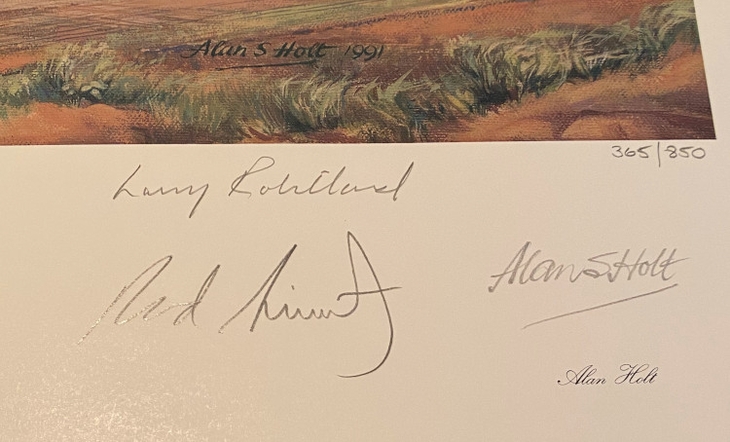 Alan S Holt 1991
365/850
Larry Robillard
Rod Smith
Alan S Holt
Alan Holt